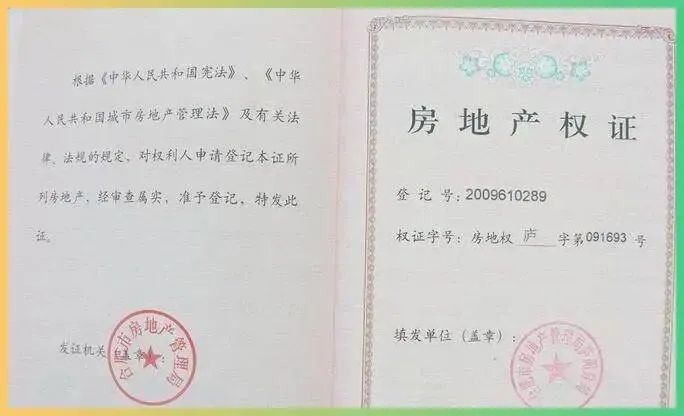 根据《中华人民共和国宪法》、《中华
人民共和国城市房地产管理法》及有关法
律、法规的规定，对权利人申请登记本证所
列房地产，经审查属实，准予登记，特发此
证。
发证机关（盖章）：
合肥市房地产管理局
房地产权证
登记号：2009610289
权证字号：房地权 庐 字第091693号
填发单位（盖章）：